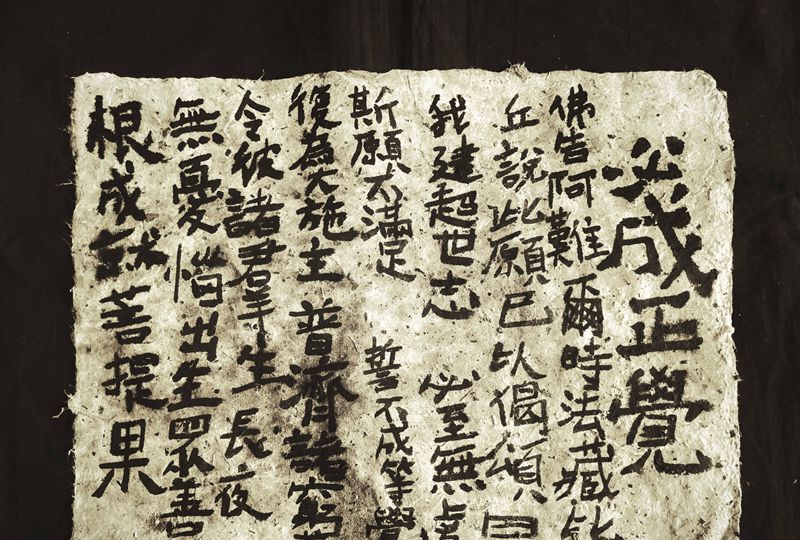 必成正覺
佛告阿難爾時法藏比
丘說此願已以偈頌曰
我建超世志 必至無
斯願不滿足 誓不成等覺
復為大施主 普濟諸窮
令彼諸群生長夜
無憂惱出生眾善
根成就菩提果